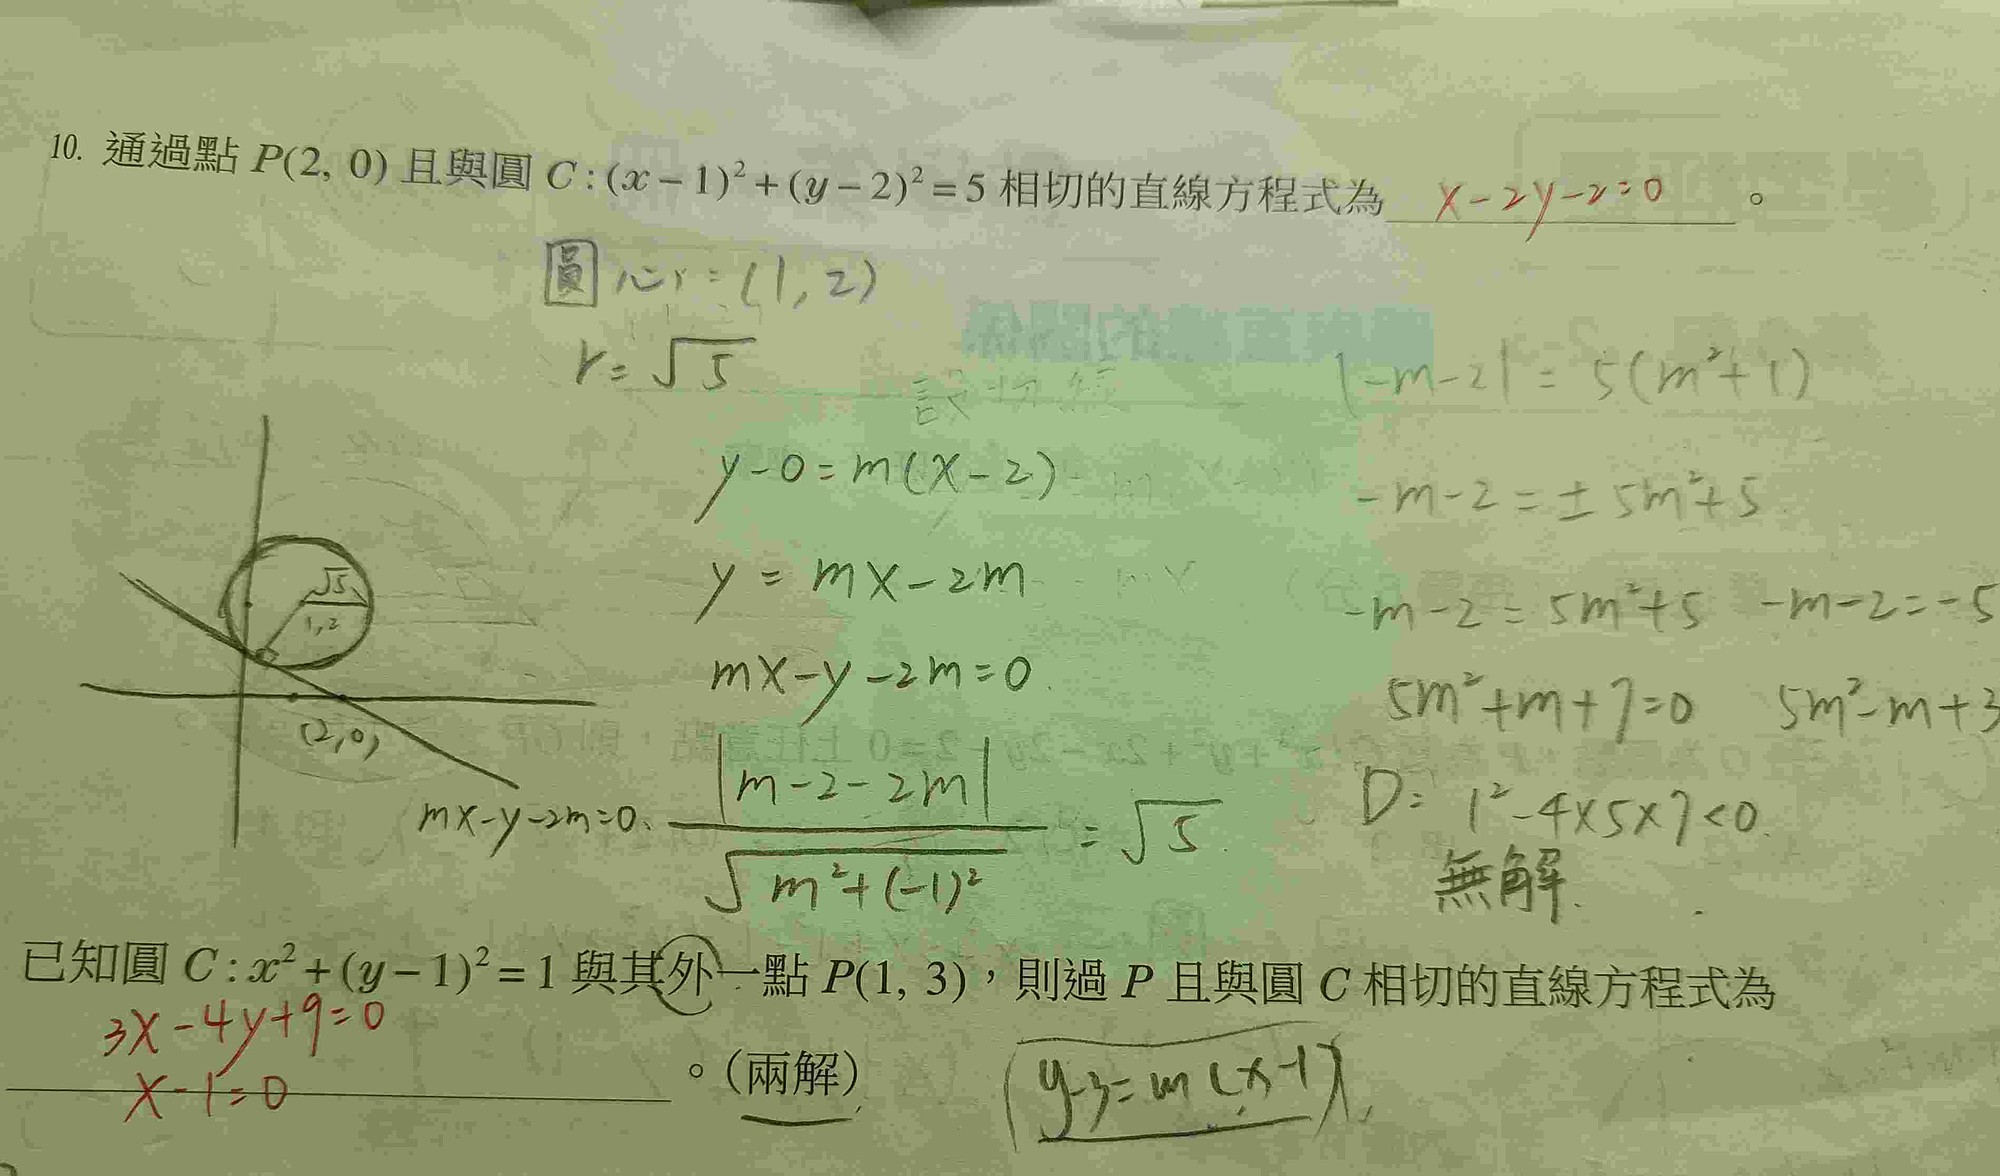 10. 通過點 P(2, 0) 且與圓 C : (x − 1)² + (y − 2)² = 5 相切的直線方程式為 x-2y-2=0 。
圓心 = (1, 2)
r = √5
設切線
y-0 = m(x-2)
y = mx-2m
mx-y-2m=0
|m-2-2m| / √(m²+(-1)²) = √5
√5
1,2
(2,0)
mx-y-2m=0
|-m-2| = 5(m²+1)
-m-2 = ± 5m²+5
-m-2 = 5m²+5 -m-2=-5
5m²+m+7=0 5m²-m+3
D= 1²-4×5×7<0
無解.
已知圓 C : x² + (y − 1)² = 1 與其外一點 P(1, 3)，則過 P 且與圓 C 相切的直線方程式為
3x-4y+9=0
x-1=0 。(兩解)
y-3=m(x-1)